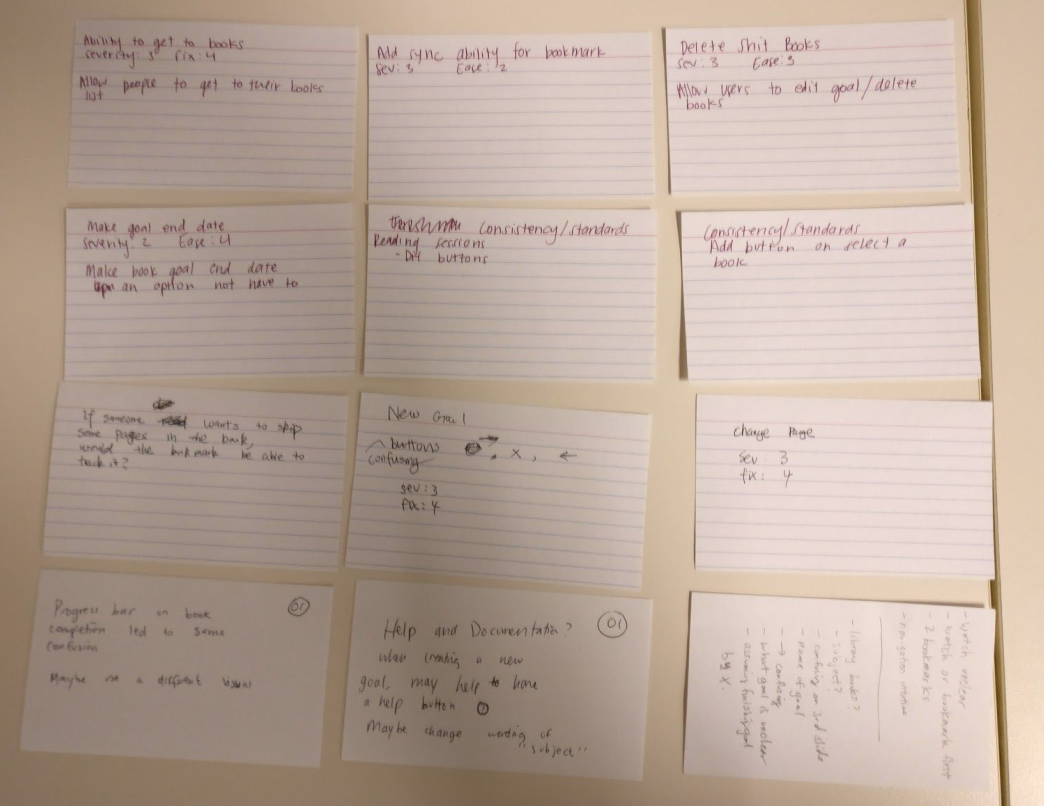 Ability to get to books
severity: 3 fix: 4
Allow people to get to their books
list
Add sync ability for bookmark
Sev: 3 Ease: 2
Delete Shit Books
Sev: 3 Ease: 3
Allow users to edit goal/delete
books
Make goal end date
Severity: 2 Ease: 4
Make book goal end date
an option not have to
Consistency/standards
Reading sessions
- buttons
Consistency/standards
Add button on select a
book
If someone wants to skip
some pages in the book,
would the bookmark be able to
track it?
New Goal
buttons
confusing , x, ←
sev: 3
fix: 4
Change Page
Sev: 3
fix: 4
Progress bar on book
completion led to some
confusion
Maybe use a different visual
Help and Documentation?
when creating a new
goal, may help to have
a help button ?
Maybe change wording of
"subject"
- watch unclear
- watch or bookmark first
- 2 bookmarks
- library books?
- subject?
- confusing on 3rd slide
- name of goal
→ confusing
- what goal is unclear
- assuming finishing goal
by X.